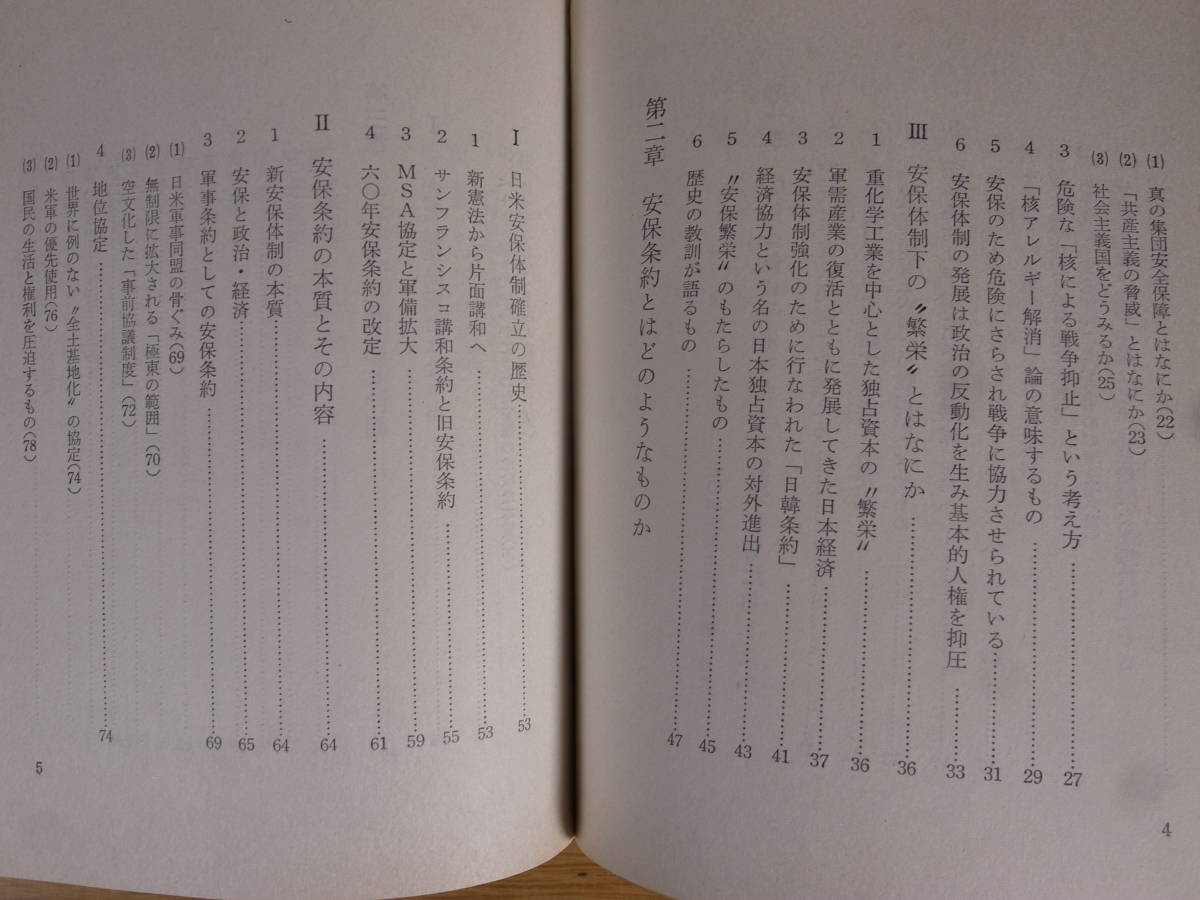 (1) 真の集団安全保障とはなにか(22)
(2) 「共産主義の脅威」とはなにか(23)
(3) 社会主義国をどうみるか(25)
3 危険な「核による戦争抑止」という考え方………27
4 「核アレルギー解消」論の意味するもの………29
5 安保のため危険にさらされ戦争に協力させられている………31
6 安保体制の発展は政治の反動化を生み基本的人権を抑圧………33
Ⅲ 安保体制下の〝繁栄〟とはなにか………36
1 重化学工業を中心とした独占資本の〝繁栄〟………36
2 軍需産業の復活とともに発展してきた日本経済………37
3 安保体制強化のために行なわれた「日韓条約」………41
4 経済協力という名の日本独占資本の対外進出………43
5 〝安保繁栄〟のもたらしたもの………45
6 歴史の教訓が語るもの………47
第二章 安保条約とはどのようなものか
4
Ⅰ 日米安保体制確立の歴史………53
1 新憲法から片面講和へ………53
2 サンフランシスコ講和条約と旧安保条約………55
3 MSA協定と軍備拡大………59
4 六〇年安保条約の改定………61
Ⅱ 安保条約の本質とその内容………64
1 新安保体制の本質………64
2 安保と政治・経済………65
3 軍事条約としての安保条約………69
(1) 日米軍事同盟の骨ぐみ(69)
(2) 無制限に拡大される「極東の範囲」(70)
(3) 空文化した「事前協議制度」(72)
4 地位協定………74
(1) 世界に例のない〝全土基地化〟の協定(74)
(2) 米軍の優先使用(76)
(3) 国民の生活と権利を圧迫するもの(78)
5